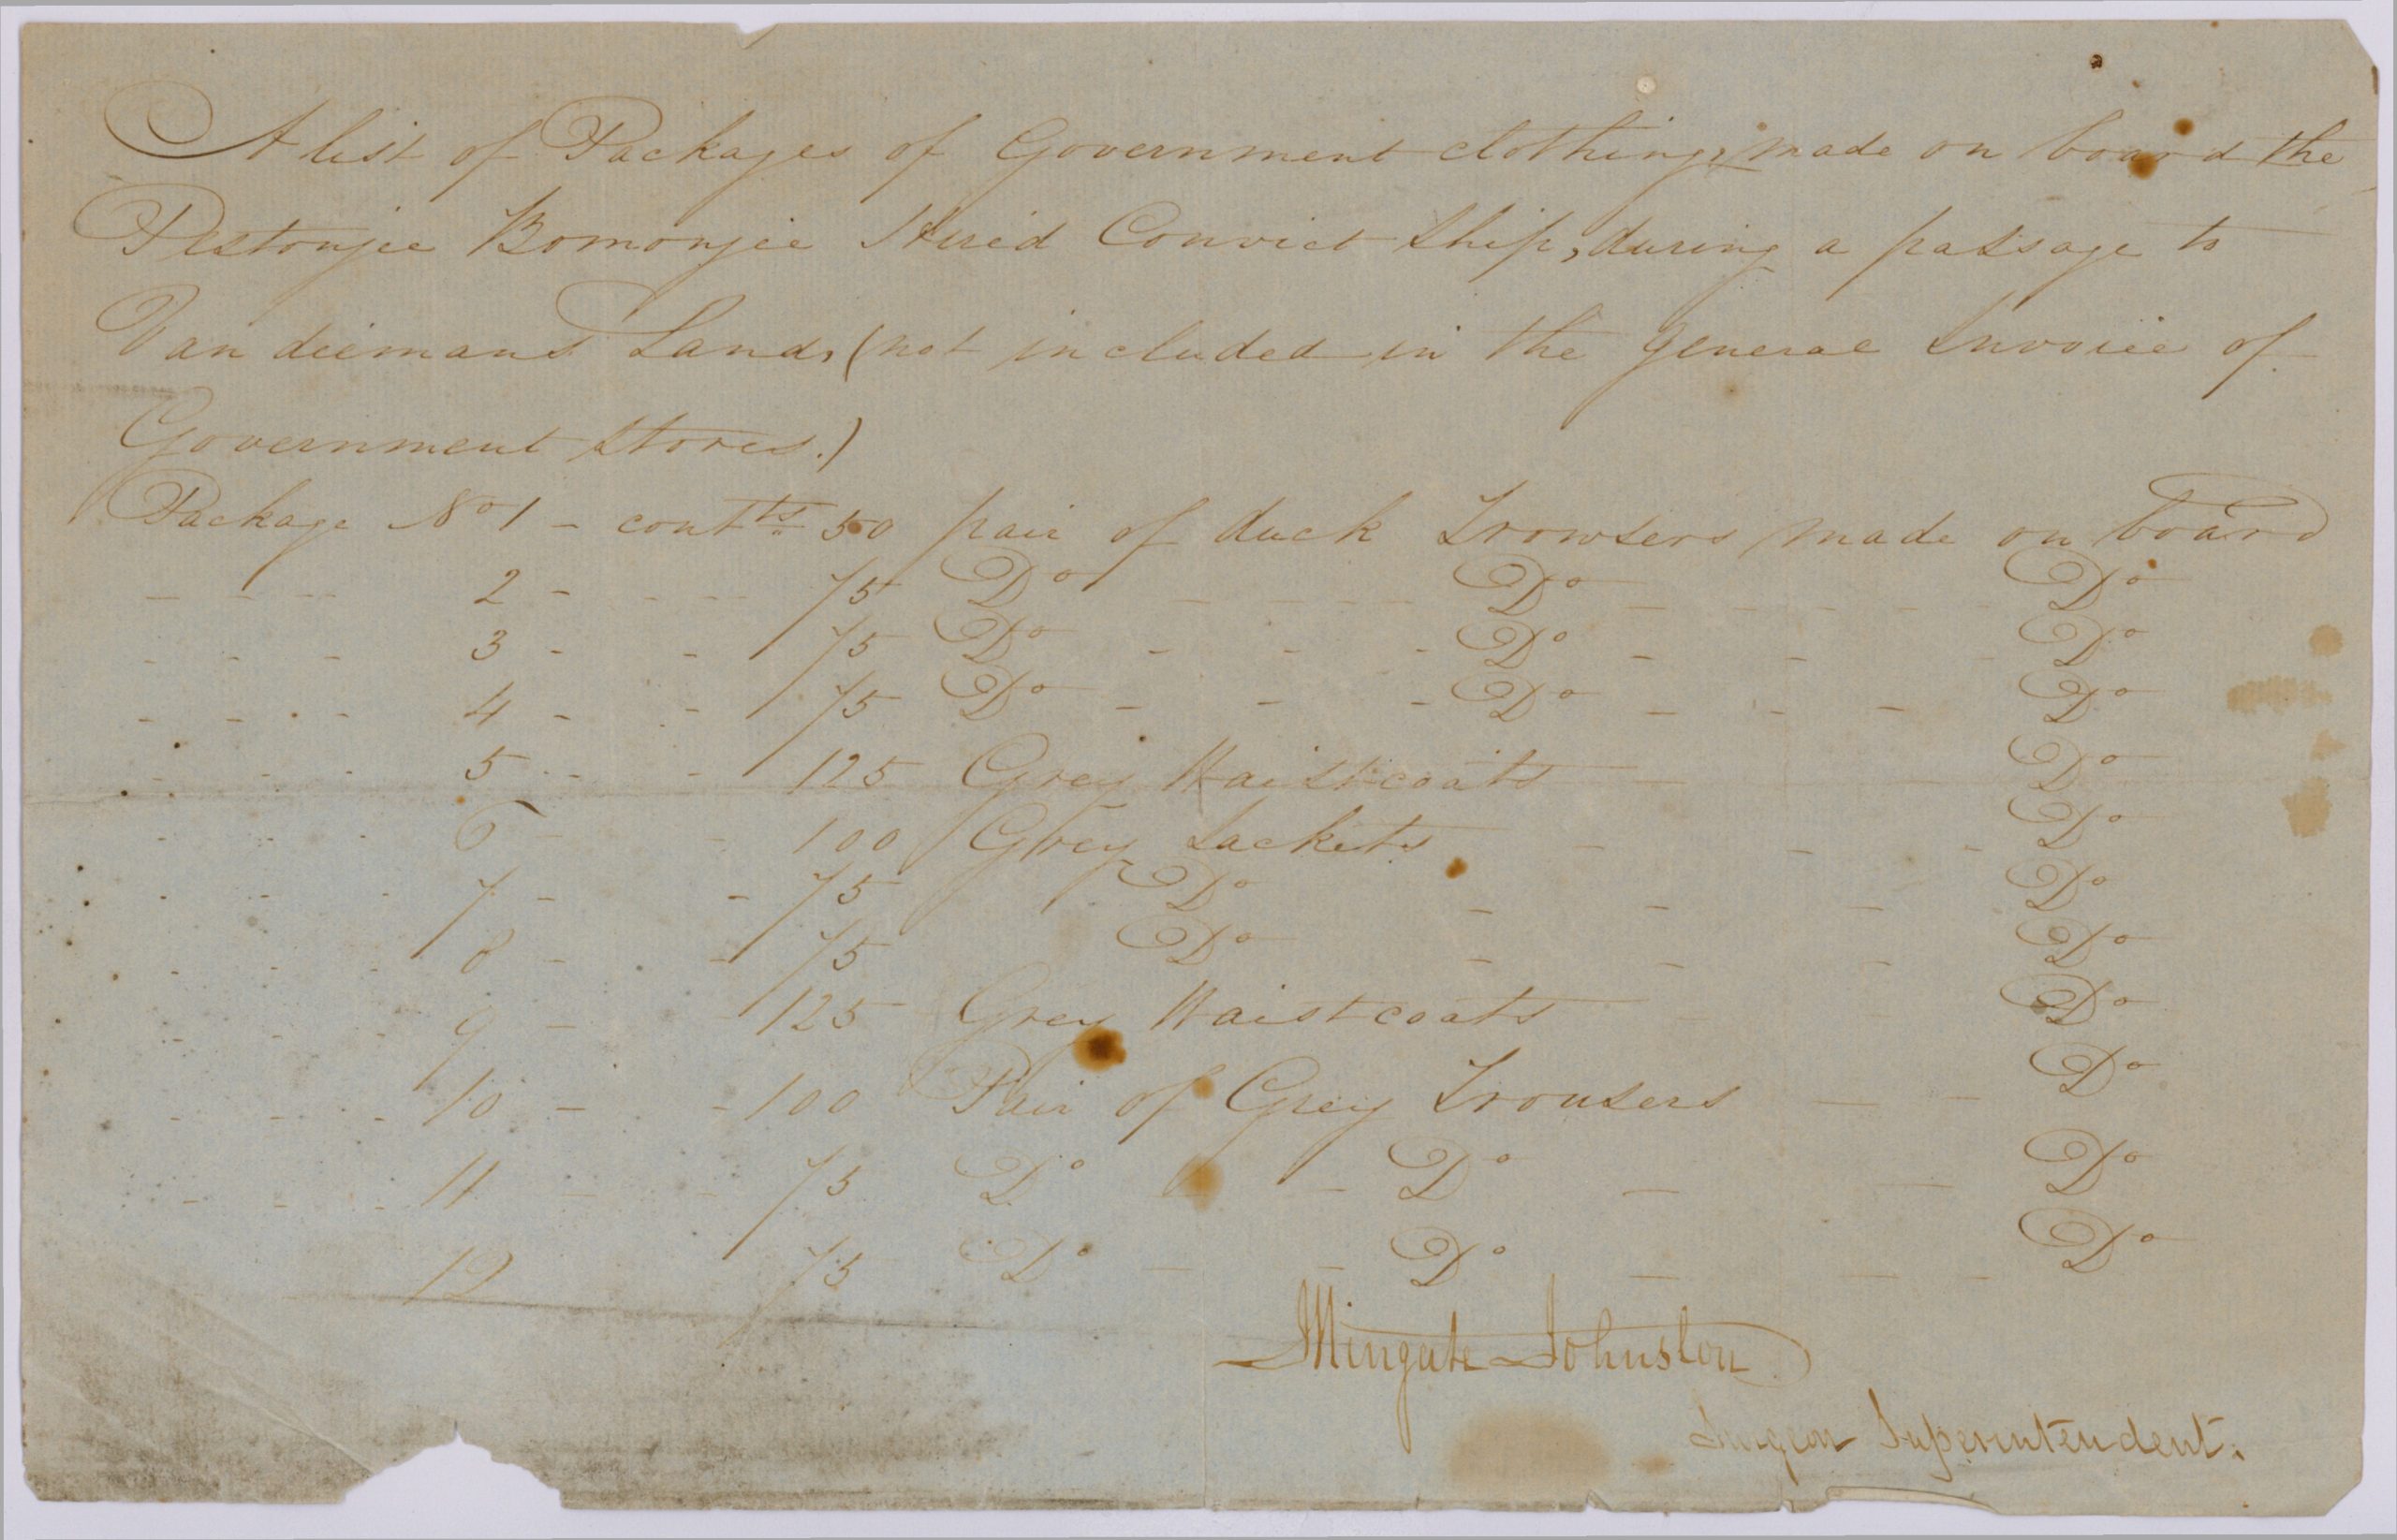 A list of Packages of Government clothing, made on board the
Pestonjee Bomonjee Hired Convict Ship, during a passage to
Van diemans Land, (not included in the general Invoice of
Government Stores.)
Package No 1 - contts 50 pair of duck Trowsers made on board
- - - 2 - - - - 75 Do - - - - Do - - - - - Do
- - - 3 - - 75 Do - - - Do - - - Do
- - - - 4 - - 75 Do - - - Do - - - Do
- - - 5 - - - 125 Grey Waistcoats - Do
- - - 6 - - 100 Grey Jackets - - - Do
- - - 7 - - 75 Do - - - Do
- - - 8 - - 75 Do - - - Do
- - - 9 - - 125 Grey Waistcoats - Do
- - - 10 - - 100 Pair of Grey Trousers - - Do
- - - 11 - - 75 Do - - Do - - Do
12 75 Do - - Do - - - Do
Mingate Johnston
Surgeon Superintendent.